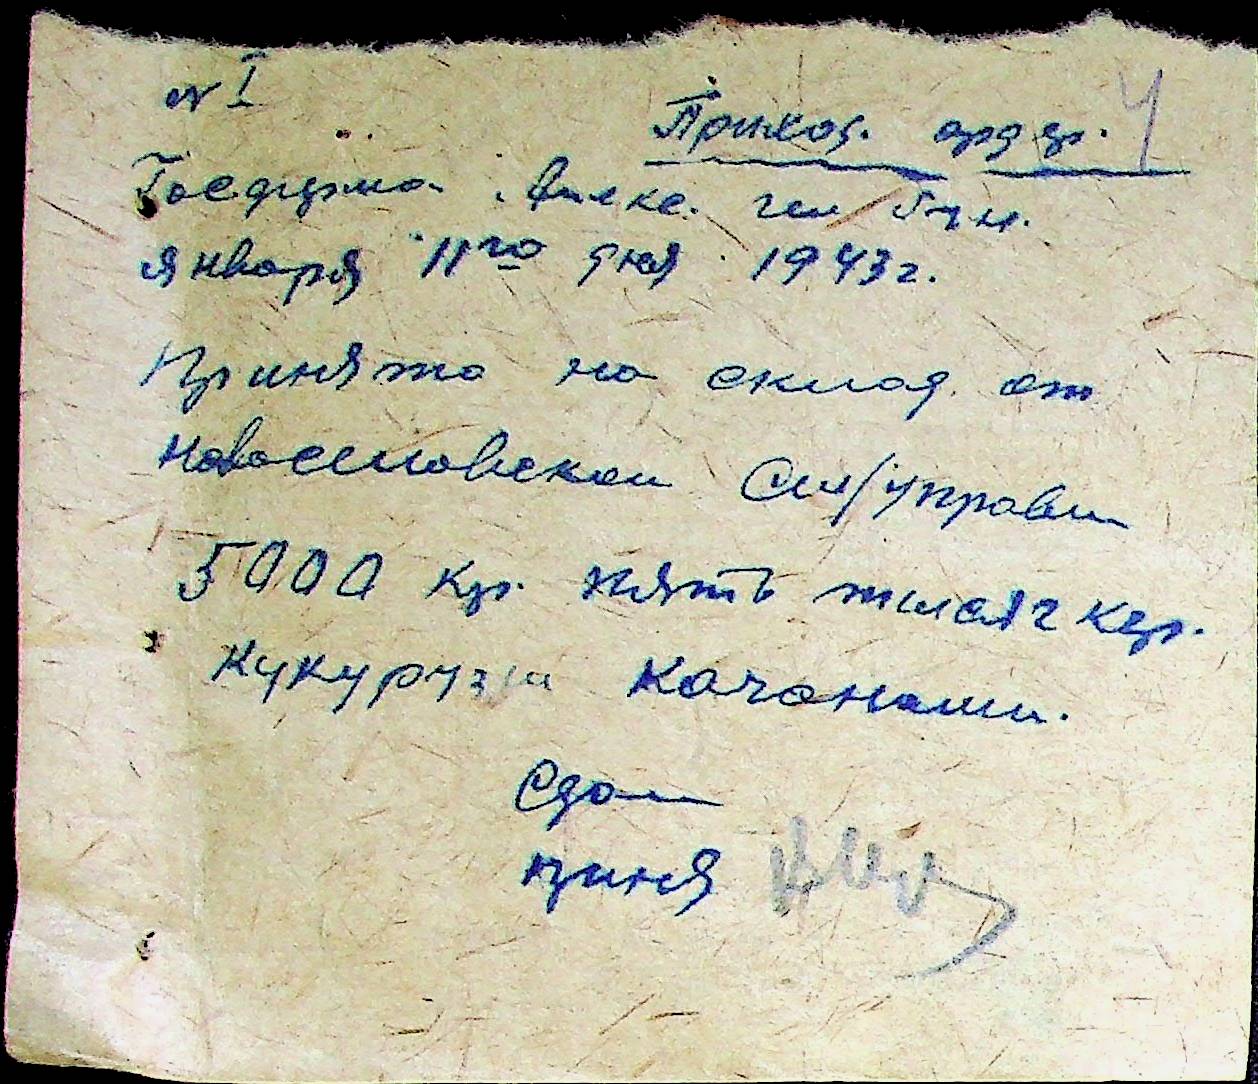 № I
Приход. ордер. 4
Госферма Алекс.
января 11го дня 1943 г.
Принято на склад от
Новоселовской Сел/управы
5000 кгр. пять тысяч кгр.
кукурузы качанами.
Сдал
приня